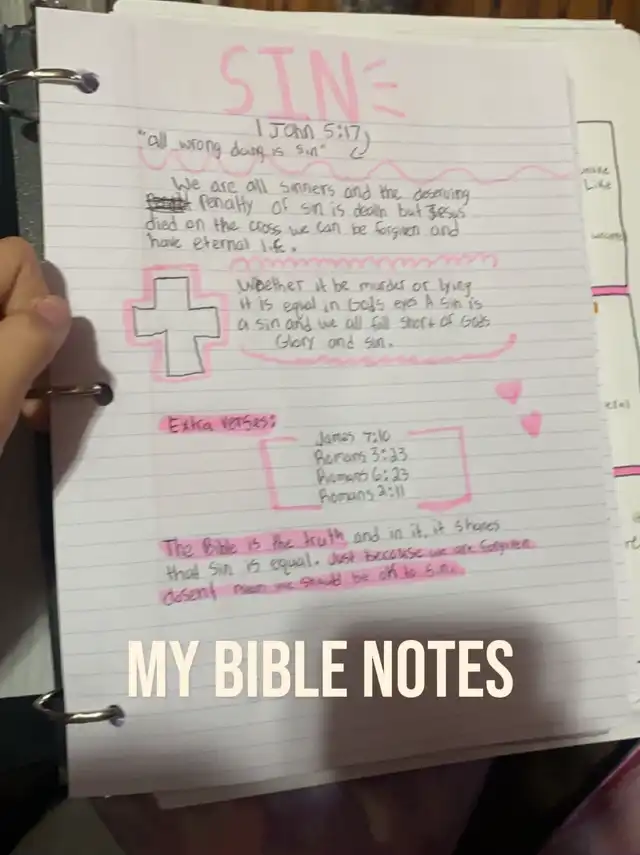 SIN
1 John 5:17
"all wrong doing is sin"
We are all sinners and the deserving
Penalty of sin is death but Jesus
died on the cross we can be forgiven and
have eternal life.
Whether it be murder or lying
it is equal in Gods eyes A sin is
a sin and we all fall short of Gods
Glory and sin.
Extra verses:
James 7:10
Romans 3:23
Romans 6:23
Romans 2:11
The Bible is the truth and in it, it shares
that sin is equal. Just because we are forgiven
dosent mean we should be ok to sin.
MY BIBLE NOTES